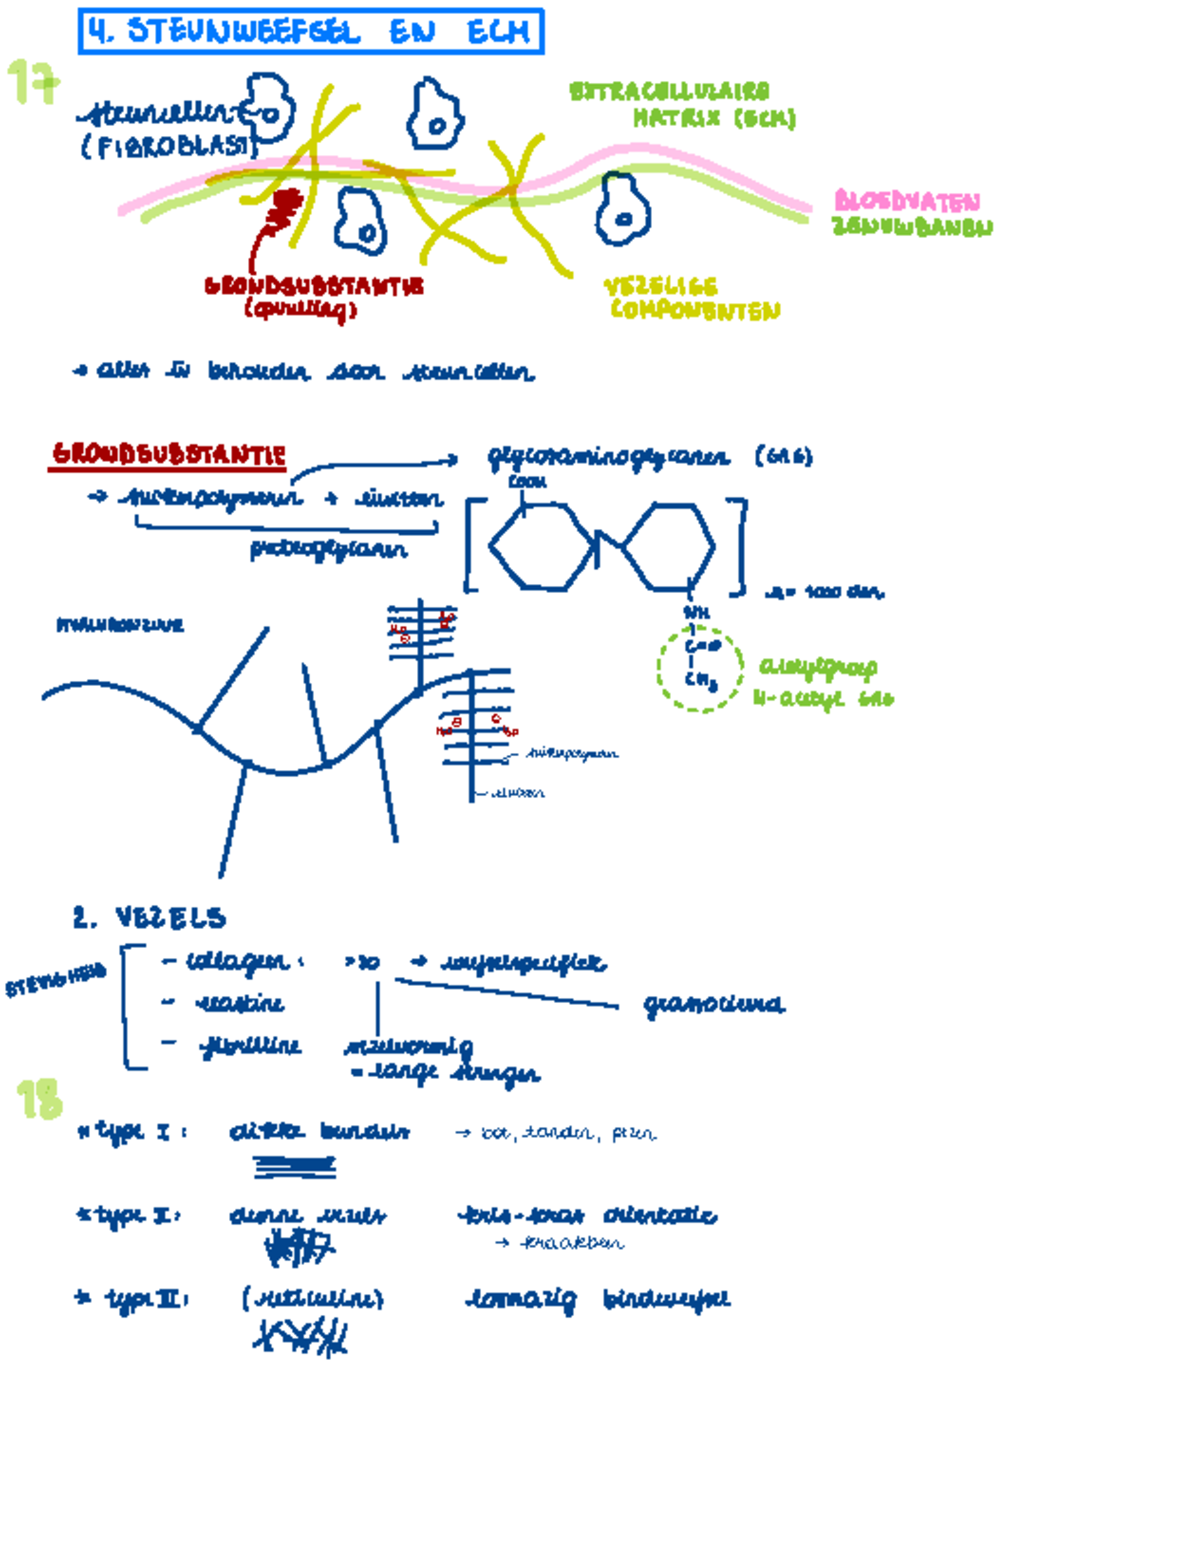 4. STEUNWEEFSEL EN ECM
17
steuncellen
(FIBROBLAST)
EXTRACELLULAIRE
MATRIX (ECM)
BLOEDVATEN
ZENUWBANEN
GRONDSUBSTANTIE
(opvulling)
VEZELIGE
COMPONENTEN
→ alles IV behouden door steuncellen
GRONDSUBSTANTIE
→ suikerpolymeren + eiwitten
glycosaminoglycanen (GAG)
proteoglycanen
COOH
n = 1000 den
NH
C=O
CH3
acetylgroep
N-acetyl GAG
HYALURONZUUR
suikerpolymeren
eiwitten
2. VEZELS
STEVIGHEID
- collageen : >30 → weefselspecifiek
- elastine
- fibrilline
vezelvormig
= lange strengen
18
* type I : dikke bundels → bot, tanden, pezen
* type II : dunne vezels kris-kras orientatie
→ kraakbeen
* type III : (reticuline) losmazig bindweefsel